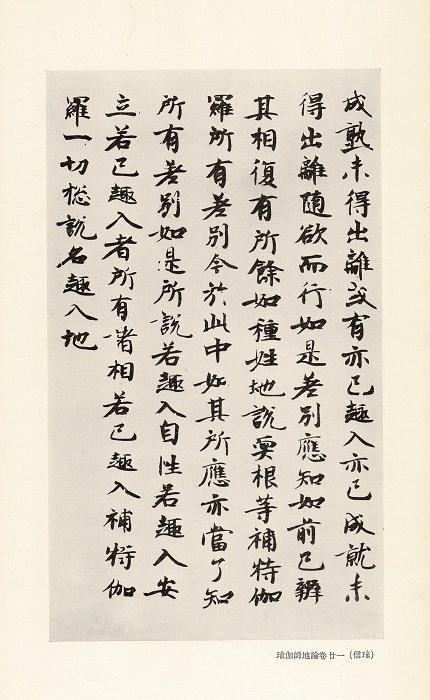 成熟未得出離或有亦已趣入亦已成就未
得出離随欲而行如是差別應知如前已辯
其相復有所餘如種姓地說耎根等補特伽
羅所有差別今於此中如其所應亦當了知
所有差別如是所說若趣入自性若趣入安
立若已趣入者所有諸相若已趣入補特伽
羅一切揔說名趣入地
瑜伽師地論卷廿一（信瑋）